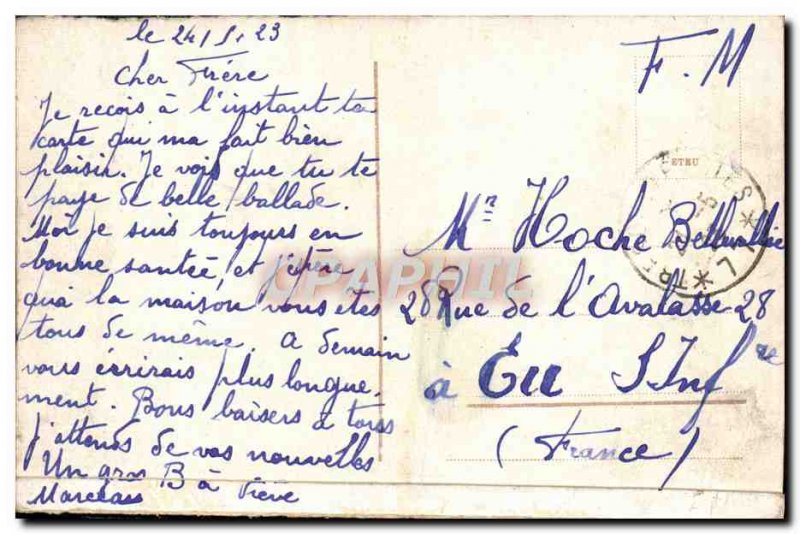 le 24/5/23
Cher Frère
Je recois à l'instant ta
carte qui ma fait bien
plaisir. Je vois que tu te
paye de belle ballade.
Moi je suis toujours en
bonne santée, et j'espère
quà la maison vous etes
tous de même. A demain
vous écrirais plus longue,
ment. Bons baisers à tous
j'attends de vos nouvelles
Un gros B à
F. M
ETRU
Mr Hoche
28 Rue de l'Avalasse 28
à Eu S Infre
(France)
CPAPHIL